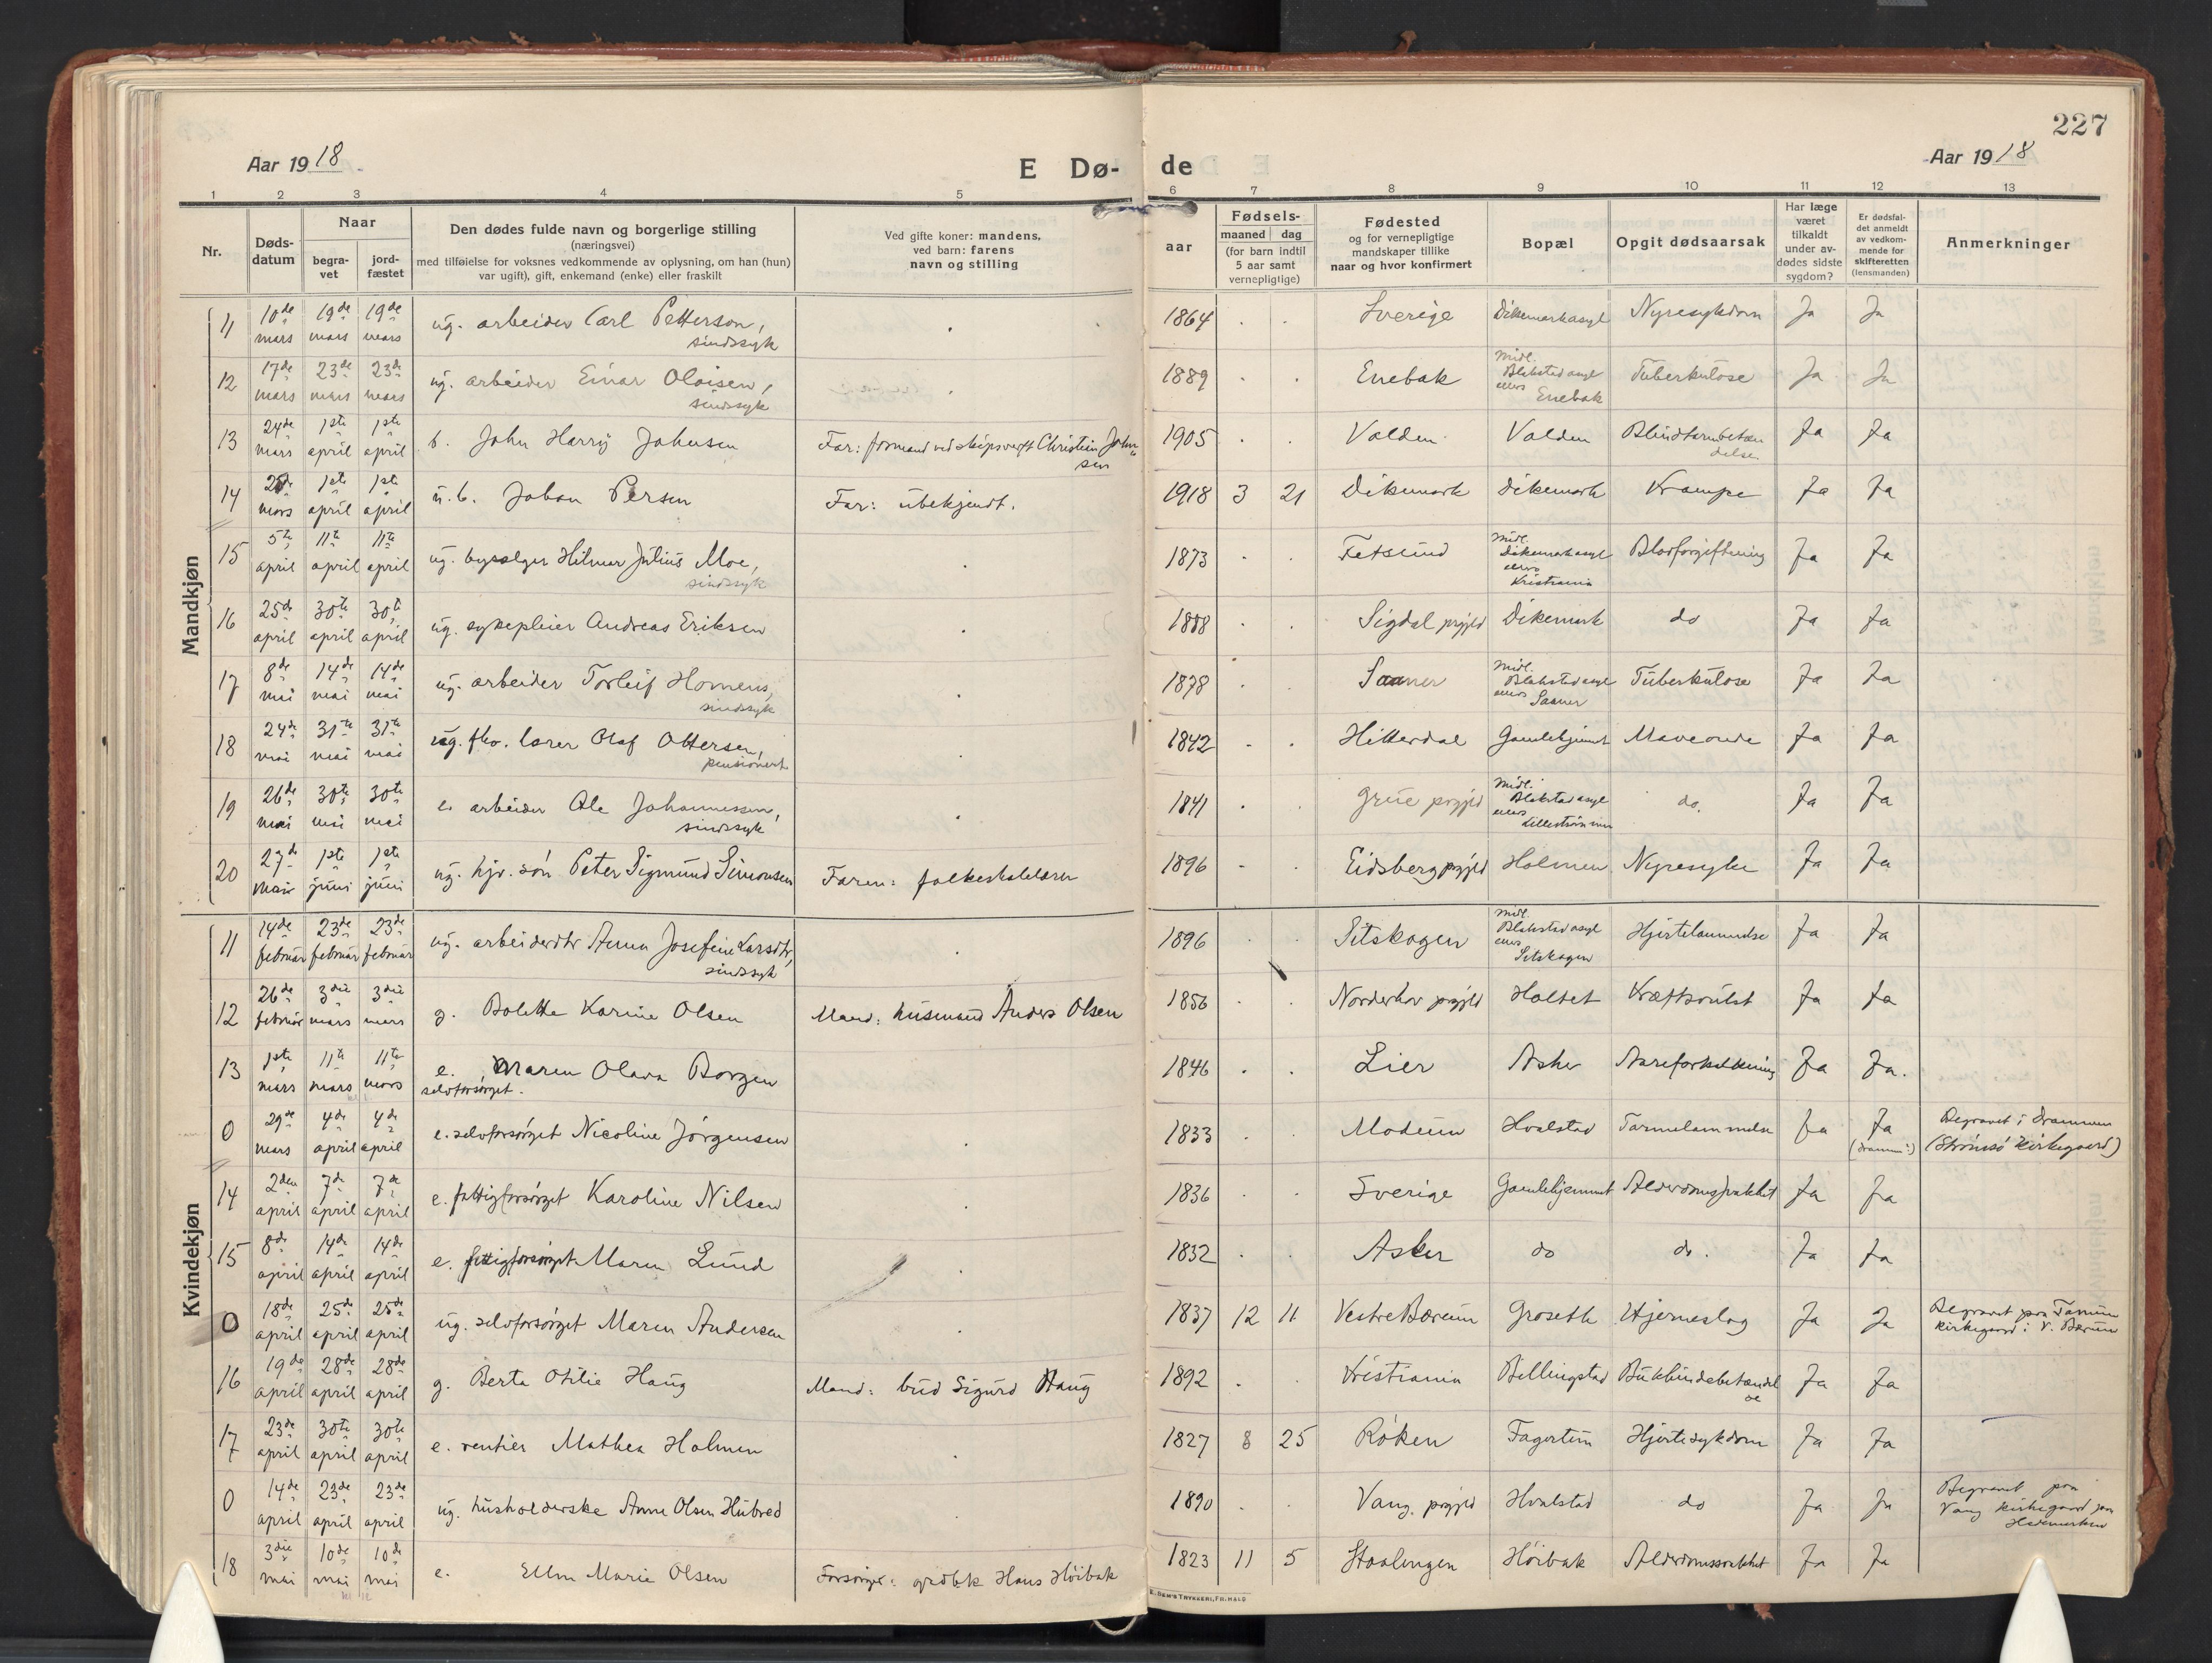 227
Aar 1918
E Dø-de
Aar 1918
1 2 3 4 5 6 7 8 9 10 11 12 13
Nr.
Døds-datum
Naar
begra-vet
jord-fæstet
Den dødes fulde navn og borgerlige stilling
(næringsvei)
med tilføielse for voksnes vedkommende av oplysning, om han (hun)
var ugift), gift, enkemand (enke) eller fraskilt
Ved gifte koner: mandens,
ved barn: farens
navn og stilling
Fødsels-
aar
maaned dag
(for barn indtil
5 aar samt
vernepligtige)
Fødested
og for vernepligtige
mandskaper tillike
naar og hvor konfirmert
Bopæl
Opgit dødsaarsak
Har læge
været
tilkaldt
under av-
dødes sidste
sygdom?
Er dødsfal-
det anmeldt
av vedkom-
mende for
skifteretten
(lensmanden)
Anmerkninger
Mandkjøn
11 10de mars 19de mars 19de mars ug. arbeider Carl Petterson, sindssyk 1864 Sverige Dikemarkasyl Nyresykdom Ja Ja
12 17de mars 23de mars 23de mars ug. arbeider Einar Olaisen, sindssyk 1889 Enebak Midl. Blakstad asyl ellers Enebak Tuberkulose Ja Ja
13 24de mars 1ste april 1ste april b. John Harry Johnsen Far: formand ved skipsverft Christian Johnsen 1905 Valden Valden Blindtarmbetændelse Ja Ja
14 mars 1ste april 1ste april u.b. Johan Persen Far: ubekjendt. 1918 3 21 Dikemark Dikemark Krampe Ja Ja
15 5te april 11te april 11te april ug. bysælger Hilmar Julius Moe, sindssyk 1873 Fetsund Midl. Dikemark asyl ellers Kristiania Blodforgiftning Ja Ja
16 25de april 30te april 30te april ug. sykepleier Andreas Eriksen 1888 Sigdal prgjld Dikemark do Ja Ja
17 8de mai 14de mai 14de mai ug. arbeider Torleif Homens, sindssyk 1878 Saaner Midl. Blakstad asyl ellers Saaner Tuberkulose Ja Ja
18 24de mai 31te mai 31te mai ug. fhv. lærer Olaf Ottersen, pensionert 1842 Hitterdal Gamlehjemmet Maveonde Ja Ja
19 26de mai 30te mai 30te mai e. arbeider Ole Johannessen, sindssyk 1841 Grue prgjld Midl. Blakstad asyl ellers Lillestrømmen do. Ja Ja
20 27de mai 1ste juni 1ste juni ug. hjv. søn Peter Sigmund Simonsen Faren: folkeskolelærer 1896 Eidsberg prgjld Holmen Nyresyke Ja Ja
Kvindekjøn
11 14de februar 23de februar 23de februar ug. arbeiderdtr Anna Josefine Larsdtr, sindssyk 1896 Sitskogen Midl. Blakstad asyl ellers Sitskogen Hjertelammelse Ja Ja
12 26de februar 3die mars 3die mars g. Bolette Karine Olsen Mand: husmand Anders Olsen 1856 Norderhov prgjld Holtet Kræftsvulst Ja Ja
13 1ste mars 11te mars 11te mars e. Maren Olava Borgen selvforsørget. 1846 Lier Asker Aareforkalkning Ja Ja.
0 29de mars 4de april 4de april e. selvforsørget Nicoline Jørgensen 1833 Modum Hvalstad Tarmelammelse Ja Ja (Drammen) Begravet i Drammen (Strømsø Kirkegaard)
14 2den april 7de april 7de april e. fattigforsørget Karoline Nilsen 1836 Sverige Gamlehjemmet Alderdomssvakhet Ja Ja
15 8de april 14de april 14de april e. fattigforsørget Maren Lund 1832 Asker do do. Ja Ja
0 18de april 25de april 25de april ug. selvforsørget Maren Andersen 1837 12 11 Vestre Bærum Groseth Hjerneslag Ja Ja Begravet paa Tanum kirkegaard i V. Bærum
16 19de april 28de april 28de april g. Berta Otilie Haug Mand: bud Sigurd Haug 1892 Kristiania Billingstad Bukhindebetændelse Ja Ja
17 23de april 30te april 30te april e. rentier Mathea Holmen 1827 8 25 Røken Fagertun Hjertesykdom Ja Ja
0 14de april 23de april 23de april ug. husholderske Anne Olsen Hubred 1890 Vang prgjld Hvalstad do Ja Ja Begravet paa Vang kirkegaard paa Hedemarken
18 3die mai 10de mai 10de mai e. Ellen Marie Olsen Forsørger: grdbk Hans Høibak 1823 11 5 Høibak Alderdomssvakhet Ja Ja
E. SEM'S TRYKKERI, FR.HALD